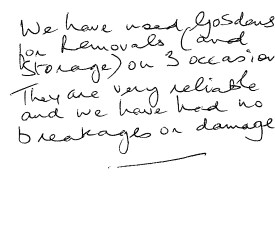 We have used Gosdens
for Removals (and
Storage) on 3 occasion
They are very reliable
and we have had no
breakages or damage